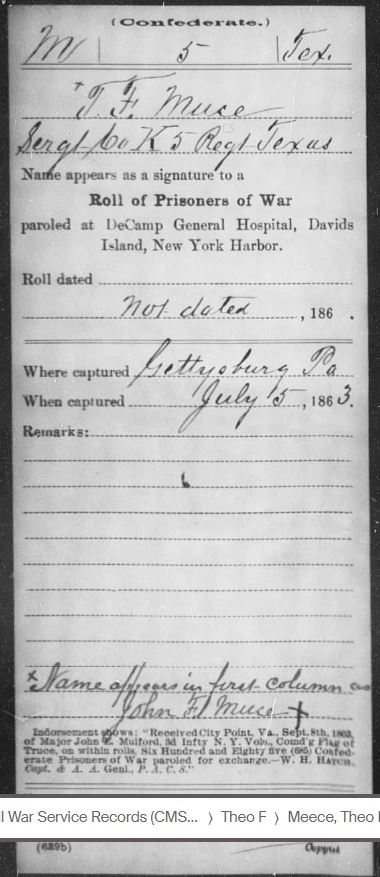 (Confederate.)
M | 5 | Tex.
× T. F. Muce
Sergt Co K 5 Regt Texas
Name appears as a signature to a
Roll of Prisoners of War
paroled at DeCamp General Hospital, Davids
Island, New York Harbor.
Roll dated
Not dated, 186 .
Where captured Gettysburg Pa
When captured July 5, 1863.
Remarks:
× Name appears in first column as
John F. Muce †
Indorsement shows: "Received City Point, Va., Sept. 8th, 1863,
of Major John E. Mulford, 3d Infty N. Y. Vols., Comd'g Flag of
Truce, on within rolls, Six Hundred and Eighty five (685) Confed-
erate Prisoners of War paroled for exchange.—W. H. HATCH,
Capt. & A. A. Genl., P. A. C. S."
l War Service Records (CMS... 〉 Theo F 〉 Meece, Theo
(639b) Copyist